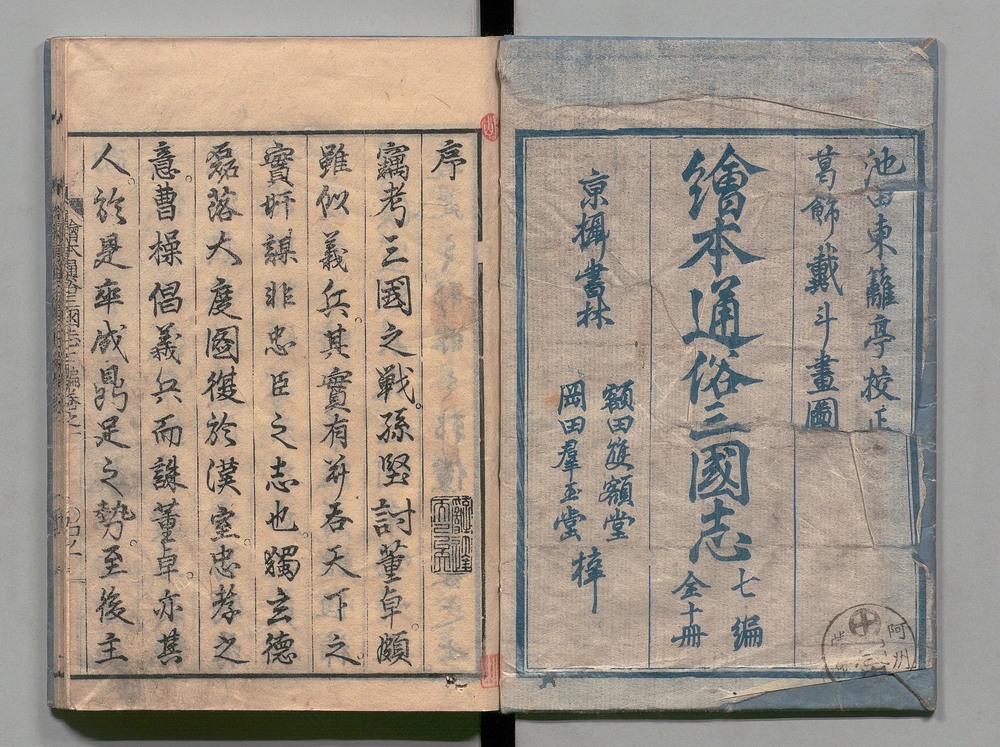 池田東籬亭校正
葛飾戴斗畫圖
繪本通俗三國志
七編
全十冊
京攝書林
額田雙額堂
岡田羣玉堂
梓
阿州
序
竊考三國之戰。孫堅討董卓。頗
雖似義兵。其實有并吞天下之。
實奸謀非忠臣之志也。獨玄德
磊落大度。國復於漢室。忠孝之
意。曹操倡義兵而誅董卓。亦其
人。於是卒成鼎足之勢。至後主